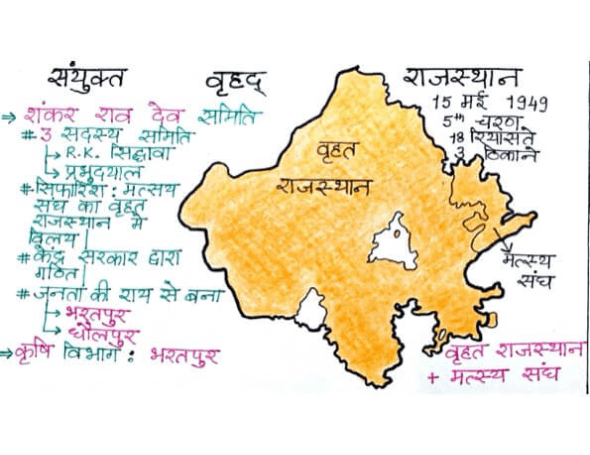 संयुक्त वृहद् राजस्थान
15 मई 1949
5th चरण
18 रियासते
3 ठिकाने
⇒ शंकर राव देव समिति
#3 सदस्य समिति
→ R.K. सिद्धावा
→ प्रभुदयाल
#सिफारिश : मत्सय
संघ का वृहत
राजस्थान में
विलय
# केंद्र सरकार द्वारा
गठित
#जनता की राय से बना
→ भरतपुर
→ धौलपुर
⇒ कृषि विभाग : भरतपुर
वृहत
राजस्थान
मत्स्य
संघ
वृहत राजस्थान
+ मत्स्य संघ